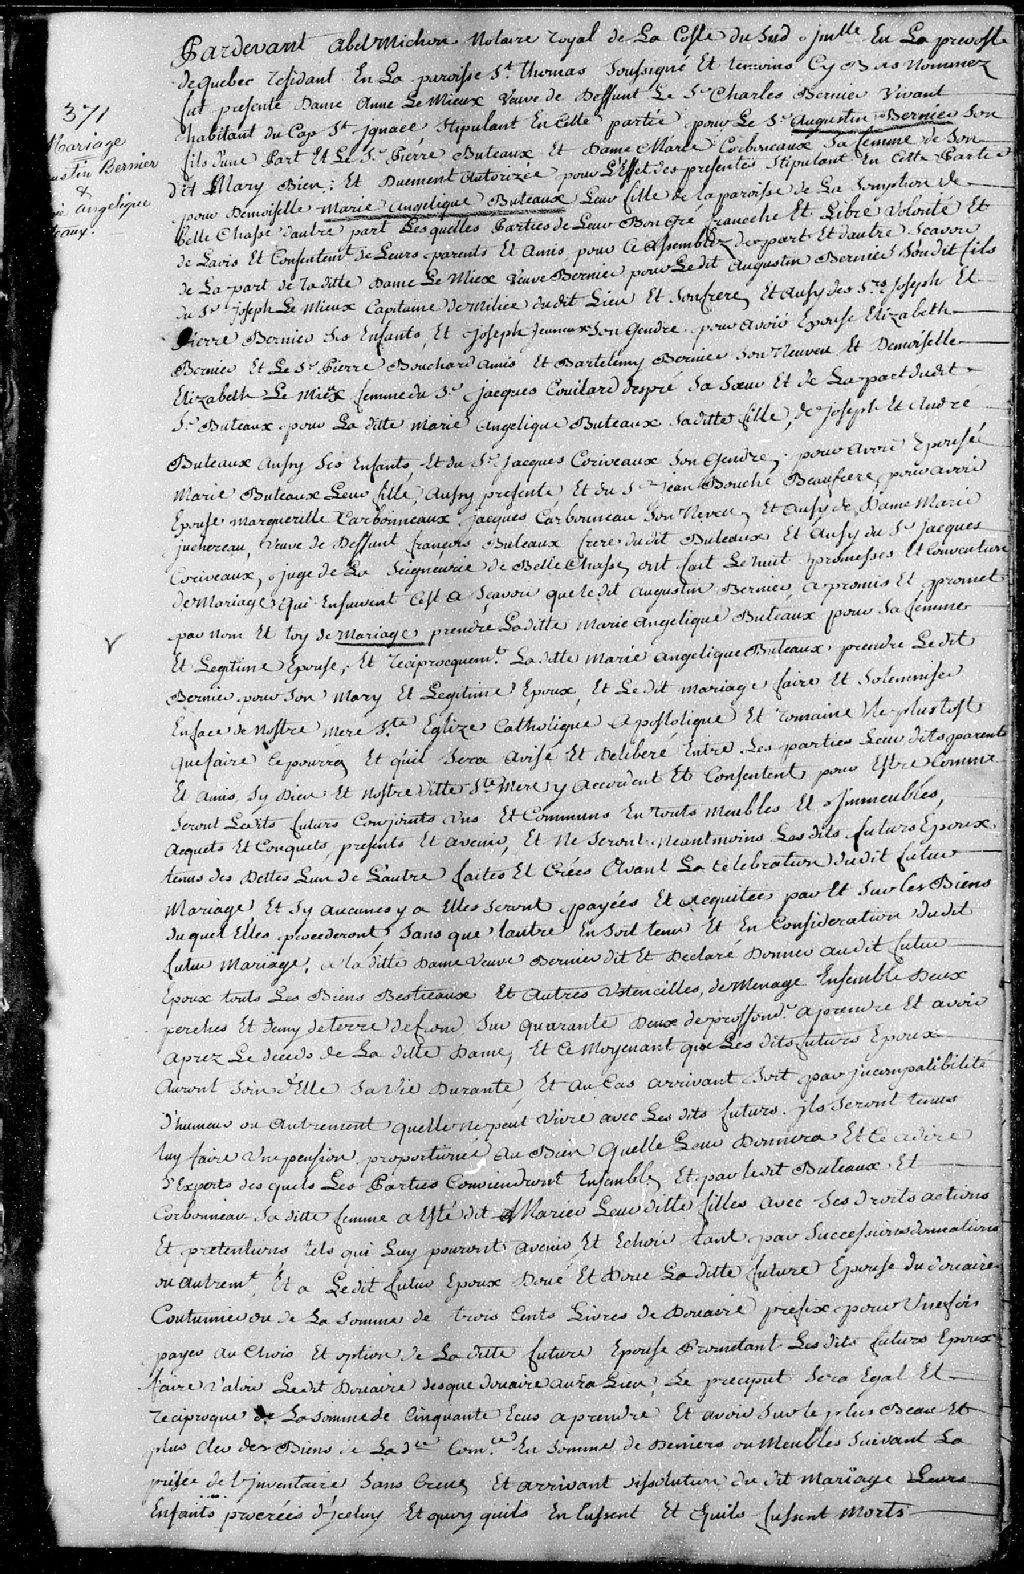 Pardevant Abel Michon Notaire royal de La Coste du Sud En La prevosté
de Quebec residant En La paroisse St Thomas Soussigné Et temoins Cy Bas Nommez
fut presente Dame Anne Le Mieux Veuve de Deffunt Le Sr Charles Bernier Vivant
habitant du Cap St Jgnace Stipulant En Cette partie pour Le Sr Augustin Bernier Son
fils d'une Part Et Le Sr Pierre Buteaux Et Dame Marie Corbineaux Sa femme de Son
dit Mary Bien Et Duement Autorizée pour L'Effet des presentes Stipulant En Cette Partie
pour Demoiselle Marie Angelique Buteaux Leur fille de la paroisse de La Somption de
Belle Chasse d'autre part Lesquelles Parties de Leur Bon Gré franche Et Libre Volonté Et
de L'avis Et Consentemt de Leurs parents Et Amis pour Ce Assemblez de part Et d'autre Scavoir
de La part de la ditte Dame Le Mieux Veuve Bernier pour Le dit Augustin Bernier Son dit fils
du Sr Joseph Le Mieux Capitaine de Milice du dit Lieu Et Son frere, Et Aussy des Srs Joseph Et
Pierre Bernier Ses Enfants, Et Joseph Son Gendre pour avoir Epousé Elizabeth
Bernier Et Le Sr Pierre Bouchard Amis Et Bartelemy Bernier Son Neuveu Et Demoiselle
Elizabeth Le Miex femme du Sr Jacques Couilard Despré Sa Sœur Et de La part du dit
Sr Buteaux pour La ditte Marie Angelique Buteaux Sa ditte fille, de Joseph Et André
Buteaux Aussy Ses Enfants, Et du Sr Jacques Coriveaux Son Gendre, pour avoir Epousé
Marie Buteaux Leur fille, Aussy presente Et du Sr Jean Bouché Beaufrere, pour avoir
Epousé marguerille Carbonneaux, Jacques Carbonneau Son Neveu, Et Aussy de Dame Marie
juchereau, Veuve de Deffunt françois Buteaux frere du dit Buteaux Et Aussy du Sr Jacques
Coriveaux, juge de La Seigneurie de Belle Chasse, ont fait Le promesses Et Convention
de Mariage qui Ensuivent C'est a Scavoir que le dit Augustin Bernier, a promis Et promet
par nom Et loy de Mariage, prendre La ditte Marie Angelique Buteaux pour Sa femme
Et Legitime Epouse, Et reciprocquemt La ditte Marie Angelique Buteaux prendre Le dit
Bernier pour Son Mary Et Legitime Epoux, Et Le dit mariage faire Et Solemniser
En face de Nostre mere Ste Eglize Catholique Apostolique Et romaine Le plus tost
que faire Ce pourra Et qu'il Sera Avisé Et Deliberé Entre Les parties Leur dits parents
Et Amis, Sy Dieu Et Nostre ditte Ste Mere y Accordent Et Consentent pour Estre Comme
Seront Lesdits futurs Conjoints Uns Et Communs En touts Meubles Et Jmmeubles,
Acquets Et Conquets, presents Et avenir, Et Ne Seront Neantmoins Les dits futurs Epoux
tenus des Dettes L'un de L'autre faites Et Créés Avant La Celebration du dit futur
Mariage Et Sy Aucunes y a Elles Seront payées Et Acquitees par Et Sur les Biens
du quel Elles procederont, Sans que l'autre En Soit tenu Et En Consideration du dit
futur Mariage, a la ditte Dame Veuve Bernier dit Et Declaré Donner au dit futur
Epoux touts Les Biens Bestieaux Et Autres Ustencilles, de Menage Ensemble Deux
perches Et demy de terre de front Sur quarante Deux de proffondr a prendre Et avoir
Aprez Le deceds de La ditte Dame, Et Ce Moyenant que Les dits futurs Epoux
Auront Soin d'Elle Sa Vie Durante, Et Au Cas arrivant Soit par jncompatibilité
d'humeur ou Autrement quelle ne peut Vivre avec Les dits futurs jls Seront tenus
luy faire Une pension proportionée Au Bien Quelle Leur Donnera Et Ce a dire
d'Experts des quels Les Parties Conviendront Ensemble, Et par ledit Buteaux Et
Corbonneau Sa ditte femme a Esté dit Marier Leur ditte filles avec Ses droits actions
Et pretentions tels qui Luy pouront avenir, Et Echoir tant par Successions donnations
ou Autremt, Et a Ledit futur Epoux Doué Et Doue La ditte future Epouse du douaire
Coutumier ou de La Somme de trois Cents Livres de Douaire prefix pour Une fois
payer Au Choix Et option de La ditte future Epouse Prometant Les dits futurs Epoux
faire Valoir Ledit Douaire desque douaire aura Lieu, Le preciput Sera Egal Et
reciproque de La Somme de Cinquante Ecus a prendre Et avoir Sur le plus Beau Et
plus cler des Biens de La de Comte En Somme de Deniers ou Meubles Suivant La
prisée de L'jnventaire Sans Creue, Et arrivant disolution du dit Mariage Leurs
Enfants procréés d'jceluy Et quoy quils En Eussent Et quils fussent Morts
371
Mariage
ustin Bernier
&
Angelique
teaux.